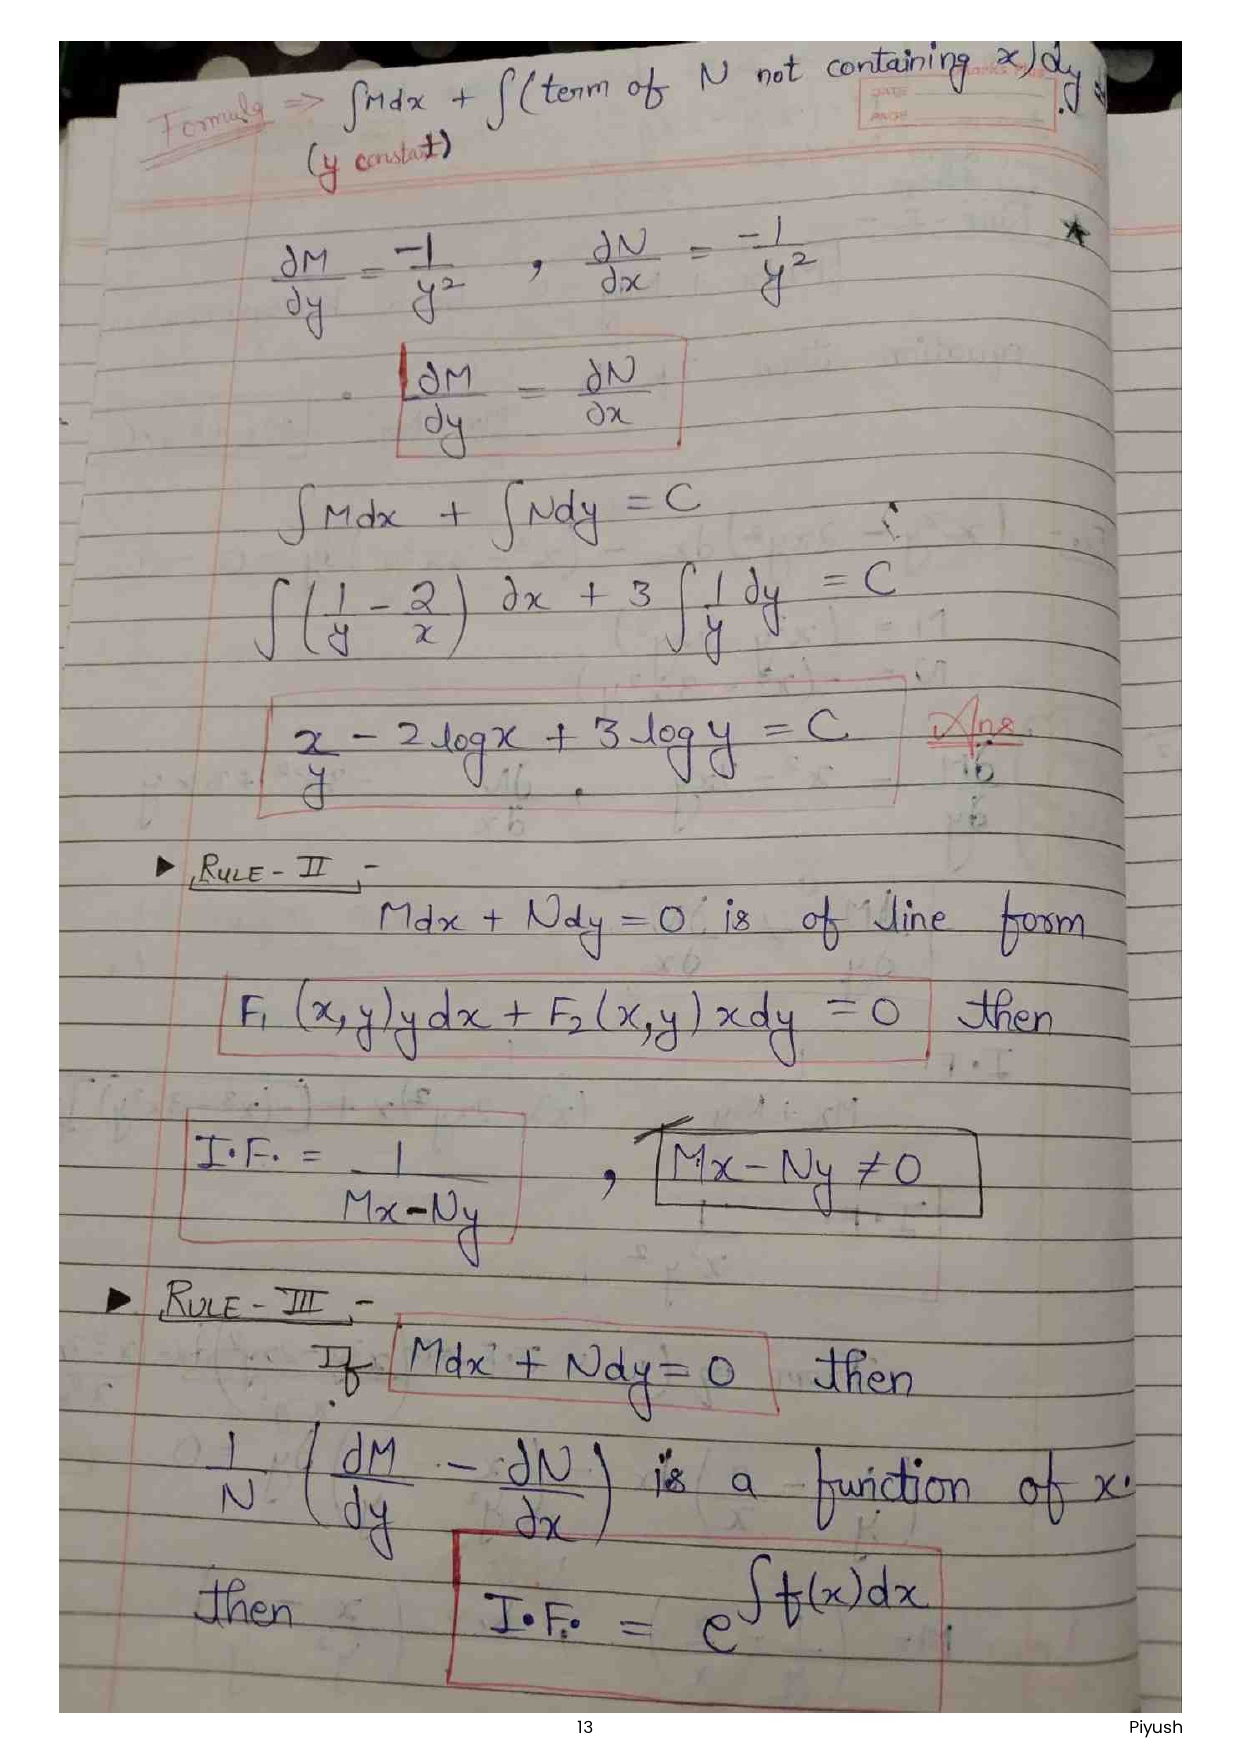 Formula ⇒ ∫Mdx + ∫(term of N not containing x)dy =
(y constant)
∂M/∂y = -1/y² , ∂N/∂x = -1/y²
∂M/∂y = ∂N/∂x
∫Mdx + ∫Ndy = C
∫(1/y - 2/x) ∂x + 3∫1/y dy = C
x/y - 2logx + 3logy = C Ans
▶ RULE-II -
Mdx + Ndy = 0 is of line form
F₁(x,y)ydx + F₂(x,y)xdy = 0 then
I.F. = 1/Mx-Ny , Mx-Ny ≠ 0
▶ RULE-III -
If Mdx + Ndy = 0 then
1/N (∂M/∂y - ∂N/∂x) is a function of x.
then I.F. = e^∫f(x)dx
13 Piyush